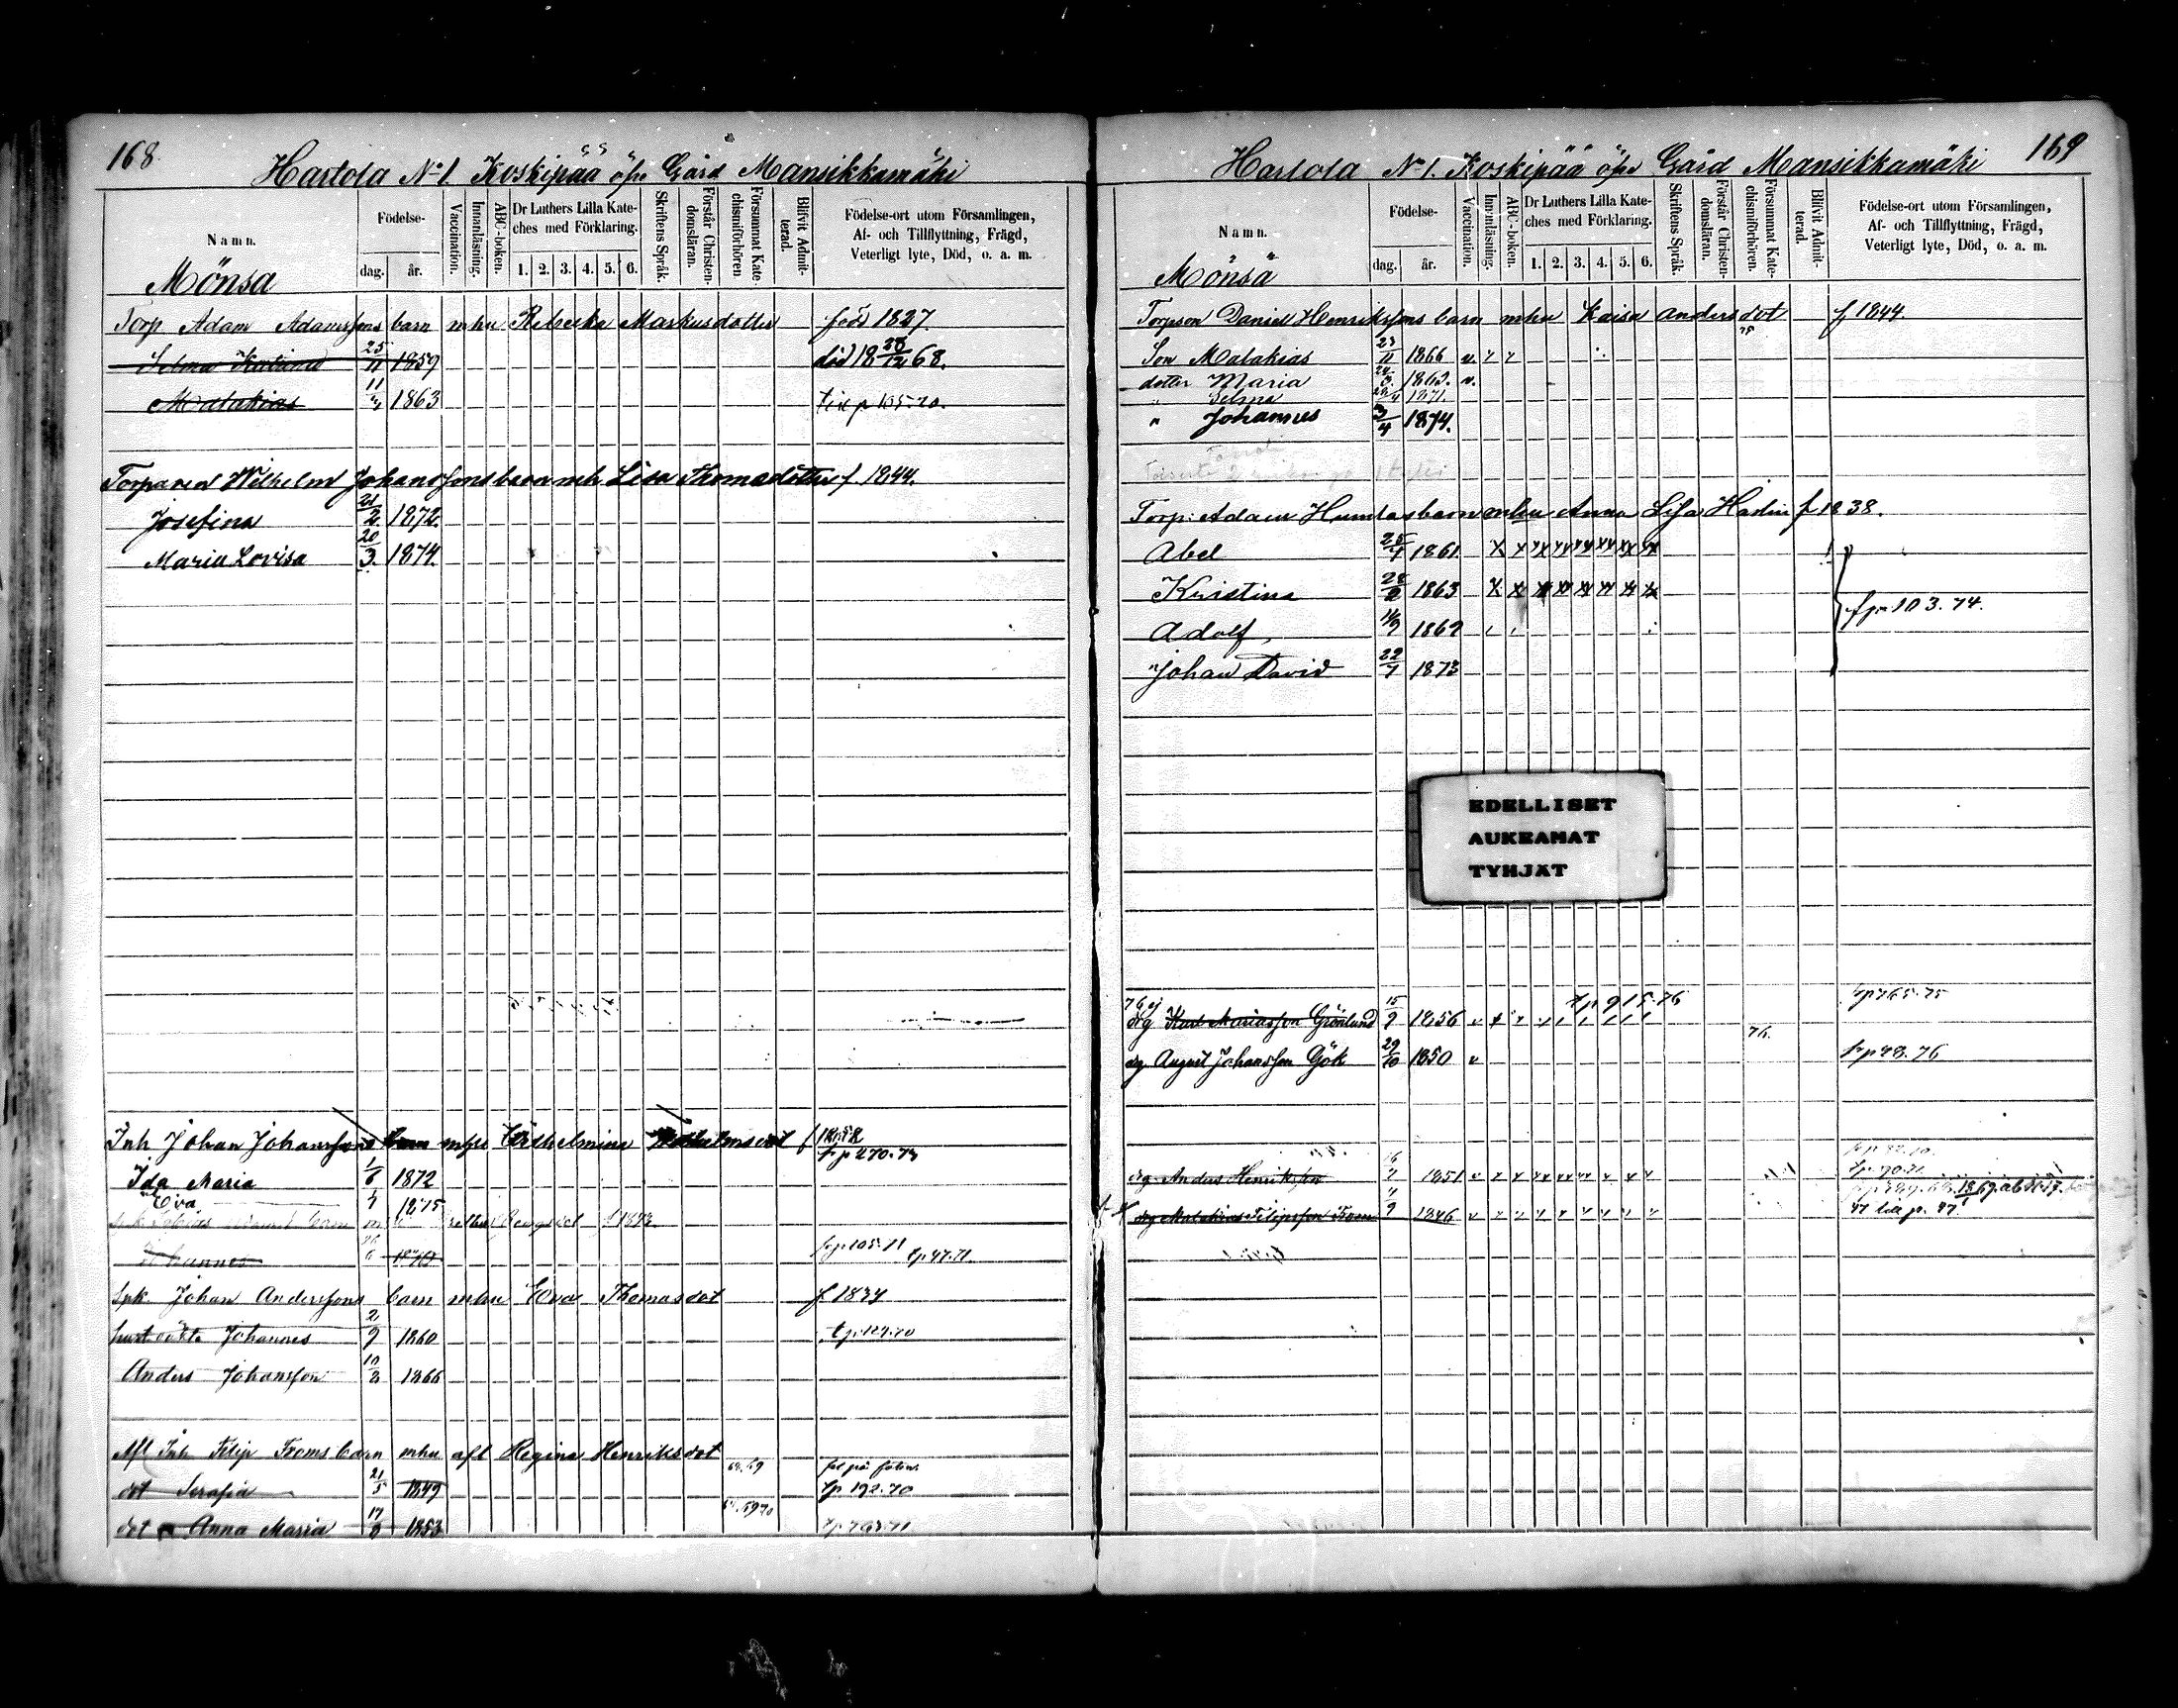 168.
Hartola No 1. Koskipää öfre Gård Mansikkamäki
Namn.
Födelse-
dag. år.
Vaccination.
Innanläsning.
ABC-boken.
Dr Luthers Lilla Kate-
ches med Förklaring.
1. 2. 3. 4. 5. 6.
Skriftens Språk.
Förstår Christen-
domsläran.
Försummat Kate-
chismiförhören
Blifvit Admit-
terad.
Födelse-ort utom Församlingen,
Af- och Tillflyttning, Frägd,
Veterligt lyte, Död, o. a. m.
Mönsä
Torp Adam Adamssons barn mhu Rebecka Markusdotter född 1827
Selma 25/11 1859 död 18 28/12 68.
Malakias 1863
Torparen Wilhelm Johanssons barn mh. Lisa Thomasdotter f. 1844.
Josefina 21/2 1872.
Maria Lovisa 20/3. 1874.
Inh Johan Johanssons barn mhu Wilhelmina f 1852
fr p 270.73
Ida Maria 1/6 1872
Eva 1875
Johannes 1870 fr p 105.71 t p 47.71.
Spk. Johan Anderssons barn mhu Eva Thomasdot f 1834
Johannes 2/9 1860 t p 124.70
Anders Johansson 10/2 1866
Afl Inh Filip Froms barn mhu afl Regina Henriksdot
68.69
dot Serafia 21/5 1849 tp 192.70
dot Anna Maria 17/8 1853
169
Hartola No 1. Koskipää öfre Gård Mansikkamäki
Namn.
Födelse-
dag. år.
Vaccination.
Innanläsning.
ABC-boken.
Dr Luthers Lilla Kate-
ches med Förklaring.
1. 2. 3. 4. 5. 6.
Skriftens Språk.
Förstår Christen-
domsläran.
Försummat Kate-
chismiförhören.
Blifvit Admit-
terad.
Födelse-ort utom Församlingen,
Af- och Tillflyttning, Frägd,
Veterligt lyte, Död, o. a. m.
Mönsä
Torpson Daniel Henrikssons barn mhu Kaisa Andersdot f 1844.
Son Malakias 23/11 1866 v
dotter Maria v.
" Selma 1871.
" Johannes 3/4 1874.
Torp. Adam Humlas barn mhu Anna Lisa Harlin f 1838.
Abel 25/7 1861.
Kristina 1863
Adolf 1869
fr p 103.74.
Johan David 22/7 1873
EDELLISET
AUKEAMAT
TYHJÄT
tp 915.76
fr p 765.75
drg Karl Mariasson Grönlund 15/9 1856
76.
drg August Johansson Gök 29/10 1850 v fr p 48.76
drg Anders Henriksson 1851
drg Malakias Filipsson From 1846